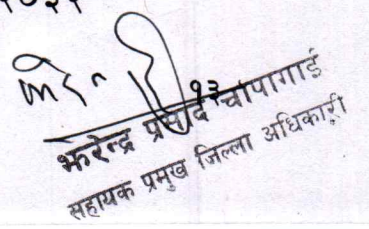 १३
झरेन्द्र प्रसाद चापागाई
सहायक प्रमुख जिल्ला अधिकारी